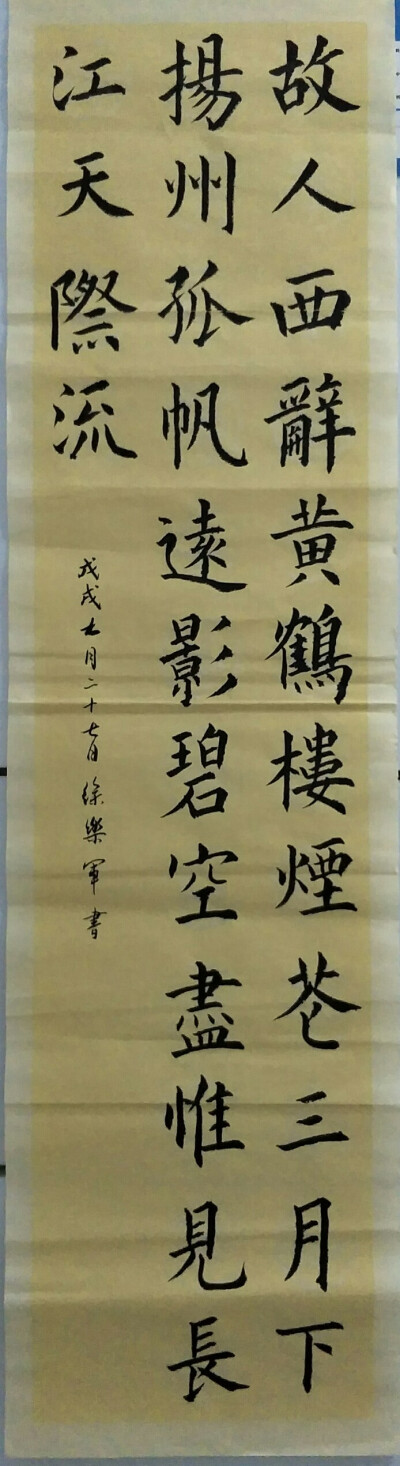 故人西辭黃鶴樓煙花三月下
揚州孤帆遠影碧空盡惟見長
江天際流
戊戌九月二十七日徐樂軍書